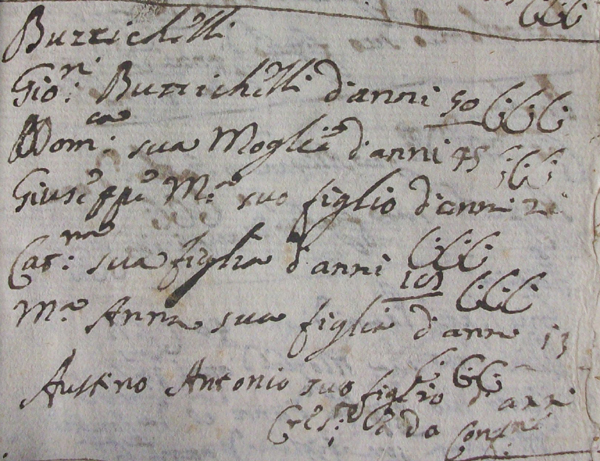 Buzzichelli
Gio:ni Buzzichelli d'anni 50 CCC
Dom:ca sua Moglie d'anni 45 CCC
Giuseppe M:a suo figlio d'anni
Cat:na sua figlia d'anni CCC
M:a Anna sua figlia d'anni 13 CCC
Austino Antonio suo figlio d'anni